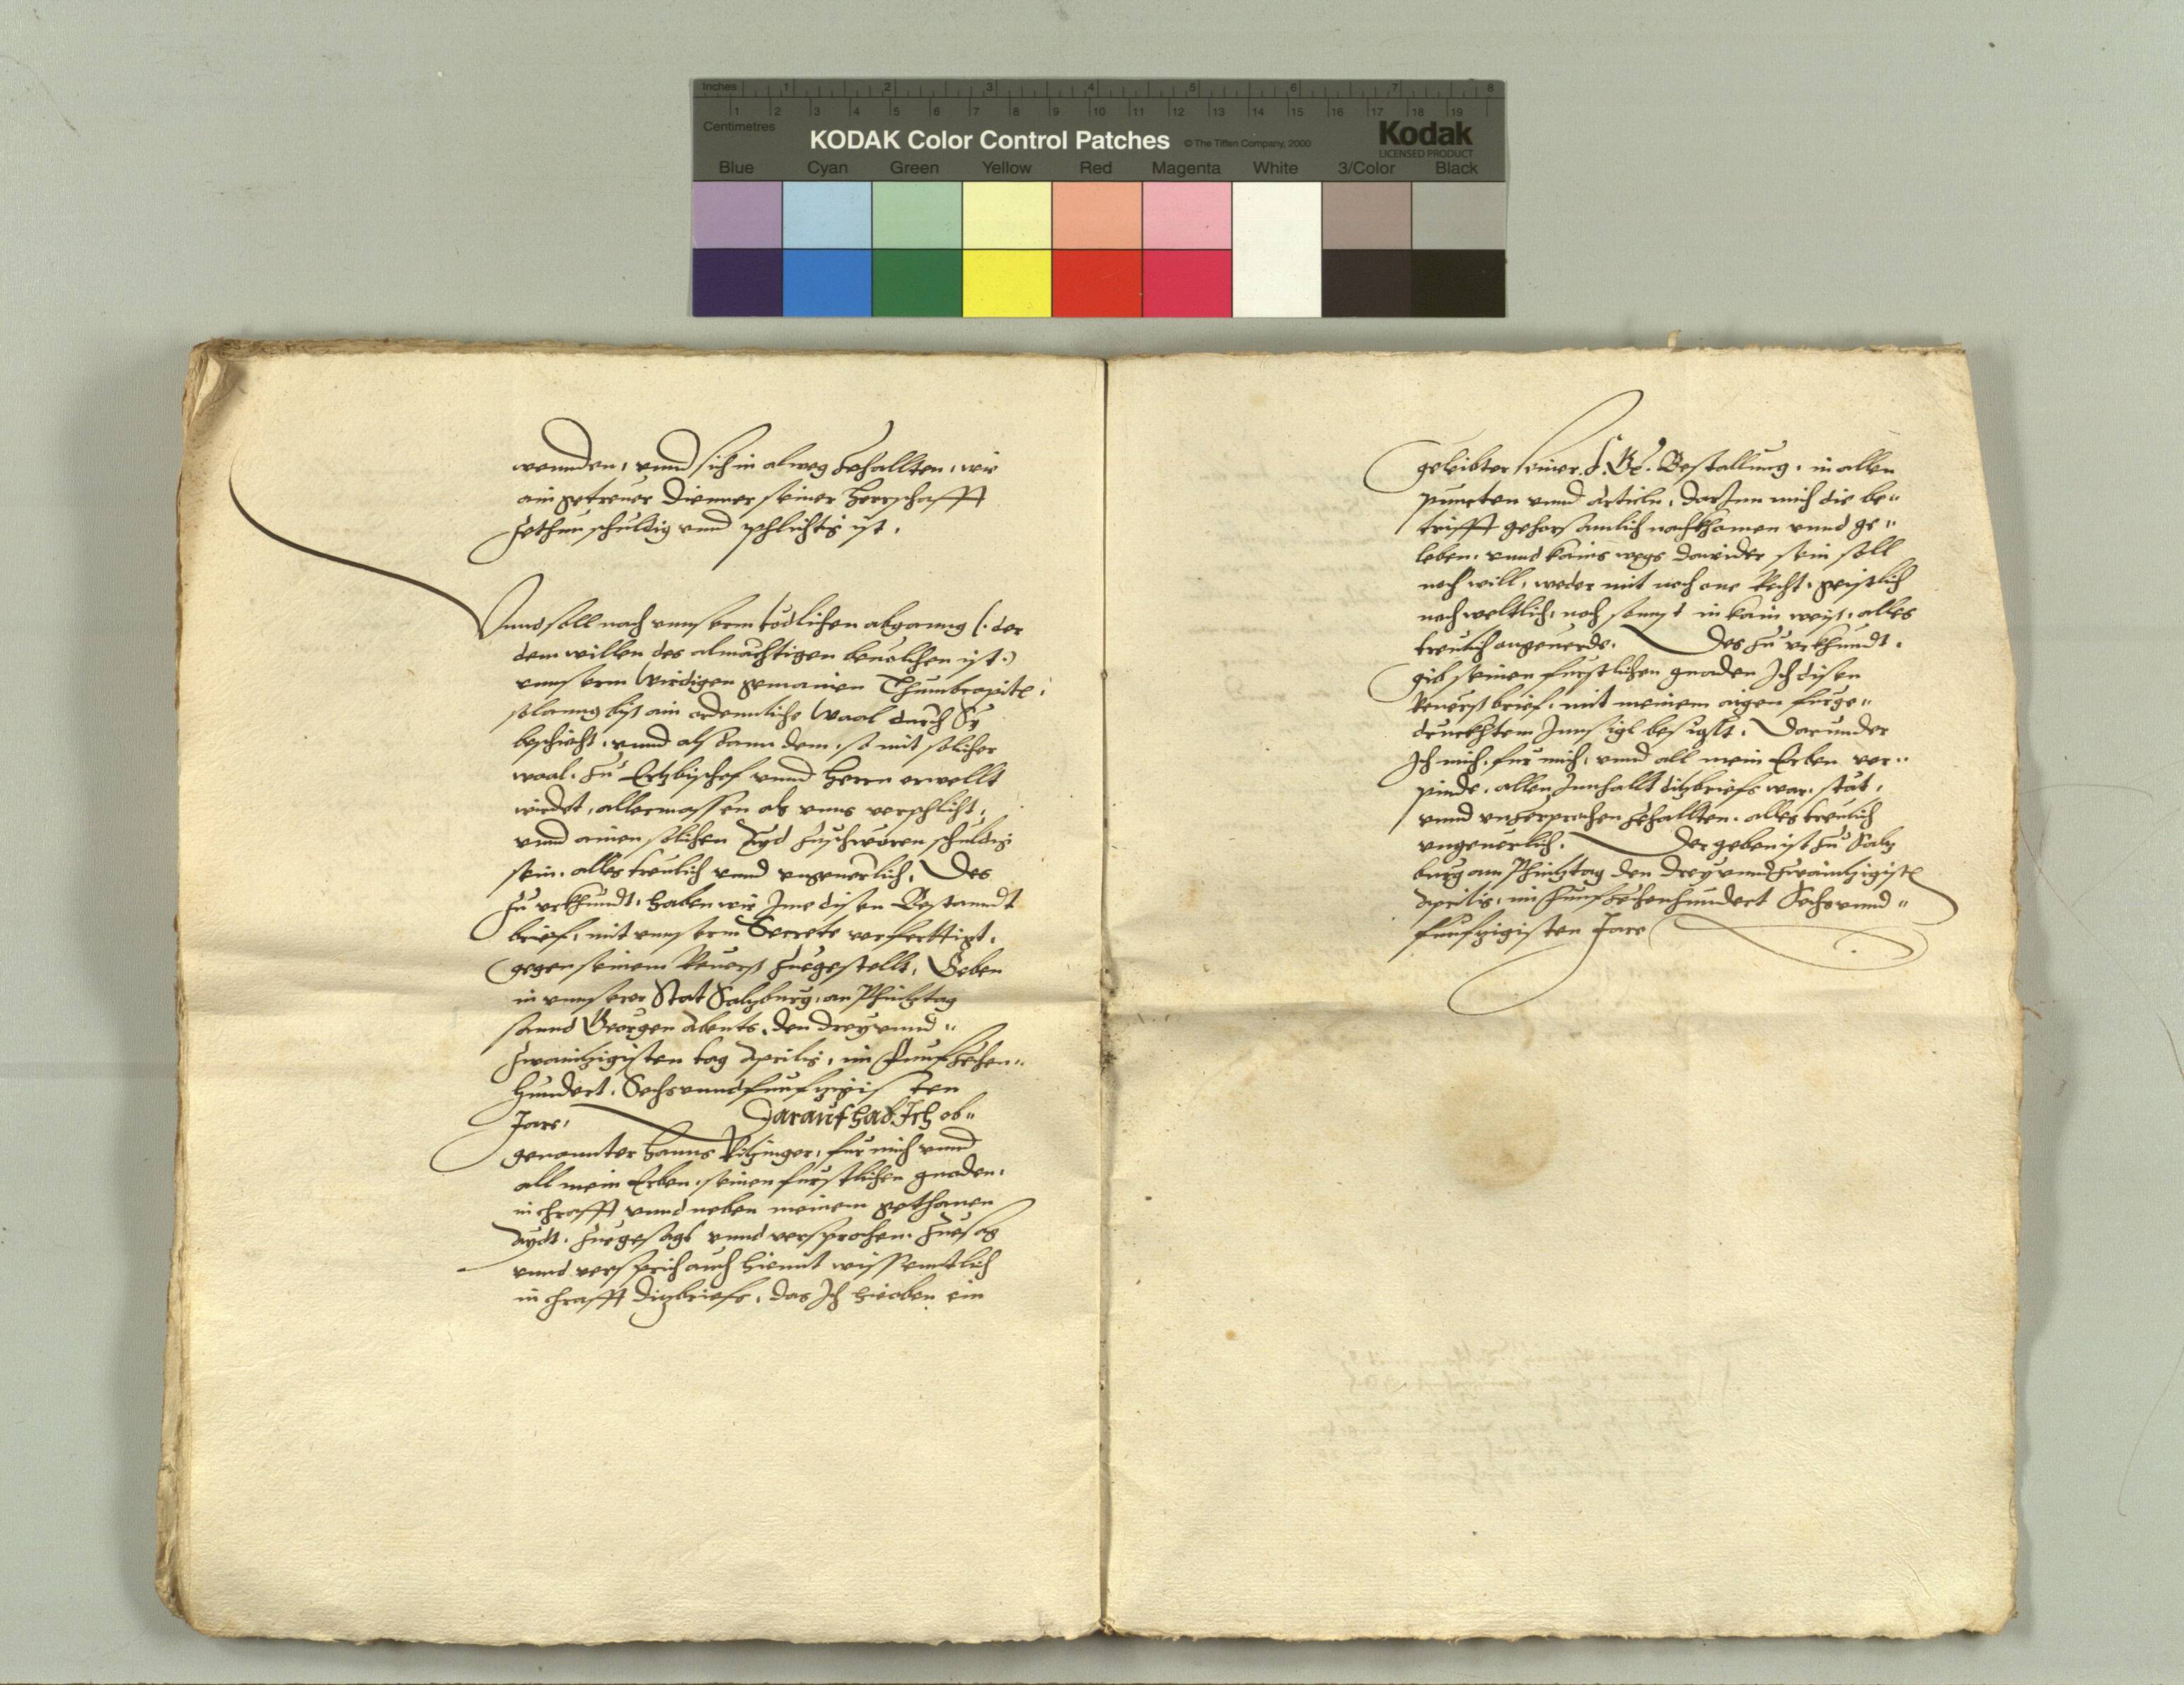 Inches 1 2 3 4 5 6 7 8
1 2 3 4 5 6 7 8 9 10 11 12 13 14 15 16 17 18 19
Centimetres
KODAK Color Control Patches © The Tiffen Company, 2000 Kodak
LICENSED PRODUCT
Blue Cyan Green Yellow Red Magenta White 3/Color Black
wennden, vnnd sich in alweg zehallten, wie
ain getreuer Dienner seiner herrschafft
zethun schuldig vnnd phlichtig ist.
Vnnd soll nach vnnserm todlichen abganng (: der
dem willen des almächtigen beuolhen ist:)
vnnserm wirdigen gemainen Thumbcapitl,
solanng biss ain ordennliche waal durch Sy
beschicht, vnnd alsdann dem, so mit solicher
waal, zu Ertzbischof vnnd Herrn erwellt
wirdet, allermassen als vnns verphlicht,
vnnd ainen solichen Ayd zuschwören schuldig
sein. alles treulich vnnd vngeuerlich. Des
zu vrkhundt, haben wir Ime disen Bestanndt
brief, mit vnnserm Secrete verferttigt,
gegen seinem Reuerss zuegestellt, Geben
in vnnserer Stat Saltzburg, an Phintztag
sannd Georgen Abents, den drey vnnd
zwaintzigisten tag Aprilis, im funfzehen
hundert, Sechsvnndfunfzigisten
Jars, Darauf hab Ich ob
genannter Hanns Pitzinger, fur mich vnnd
all mein Erben, seinen furstlichen gnaden,
in chrafft vnnd neben meinem gethanen
Aydt, zuegesagt vnnd versprochen, zuesag
vnnd versprich auch hiemit wissenntlich
in chrafft ditzbriefs, das Ich hieoben ein
geleibter seiner f. Gn. Bestallung, in allen
puncten vnnd Articln, darInn mich die be
trifft gehorsamlich nachkhomen vnnd ge
leben, vnnd kains wegs dawider sein soll
noch will, weder mit noch one Recht, geistlich
noch weltlich, noch sonnst in kain weiss, alles
treulich angeuerde. Des zu vrkhundt,
gib seinen furstlichen gnaden Ich disen
Reuerss brief, mit meinem aigen furge
druckhtem Innsigl besiglt. Darunder
Ich mich, fur mich, vnnd all mein Erben ver
pinde, allen Innhallt ditzbriefs war, stät,
vnnd vnzerprochen zehallten. alles treulich
vngeuerlich. Der geben ist zu Saltz
burg am Phintztag den drey vnndzwaintzigist
Aprilis, im funfzehenhundert Sechsvnnd
funfzigisten Jare